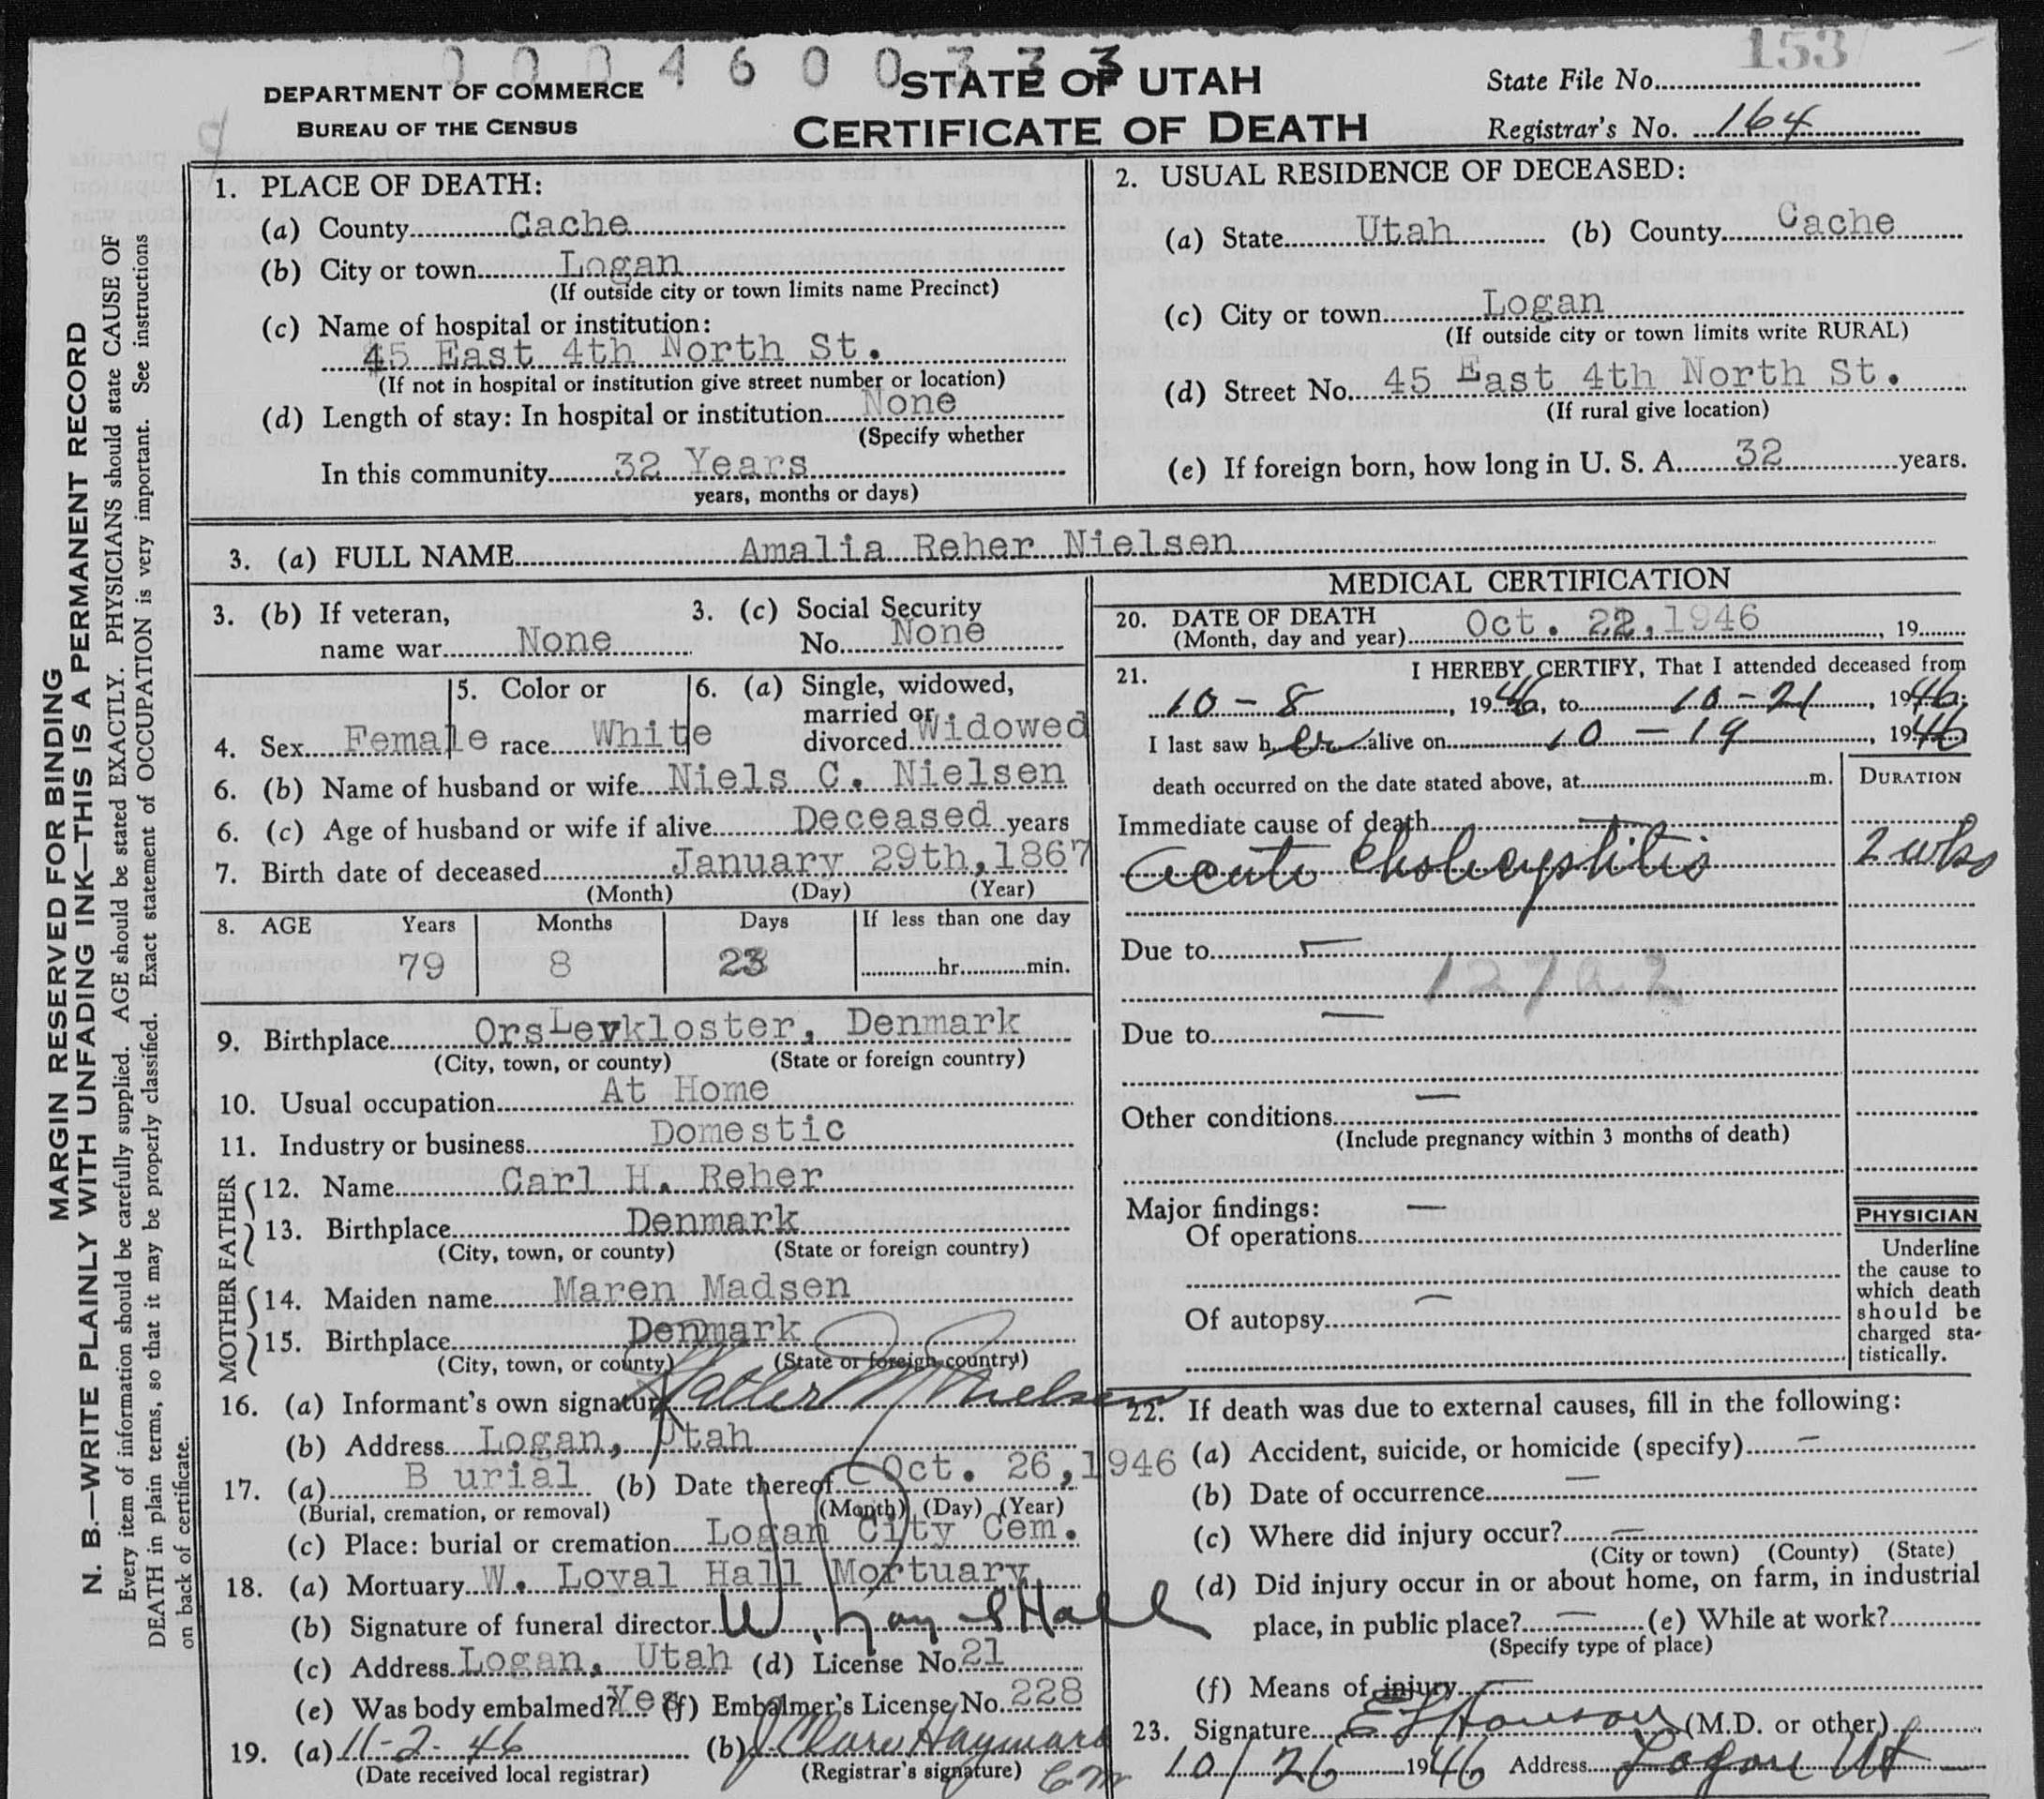 0004600333
153
DEPARTMENT OF COMMERCE
BUREAU OF THE CENSUS
STATE OF UTAH
CERTIFICATE OF DEATH
State File No.
Registrar's No. 164
MARGIN RESERVED FOR BINDING
N. B.—WRITE PLAINLY WITH UNFADING INK—THIS IS A PERMANENT RECORD
Every item of information should be carefully supplied. AGE should be stated EXACTLY. PHYSICIANS should state CAUSE OF
DEATH in plain terms, so that it may be properly classified. Exact statement of OCCUPATION is very important. See instructions
on back of certificate.
1. PLACE OF DEATH:
(a) County Cache
(b) City or town Logan
(If outside city or town limits name Precinct)
(c) Name of hospital or institution:
45 East 4th North St.
(If not in hospital or institution give street number or location)
(d) Length of stay: In hospital or institution None
(Specify whether
In this community 32 Years
years, months or days)
2. USUAL RESIDENCE OF DECEASED:
(a) State Utah (b) County Cache
(c) City or town Logan
(If outside city or town limits write RURAL)
(d) Street No. 45 East 4th North St.
(If rural give location)
(e) If foreign born, how long in U. S. A. 32 years.
3. (a) FULL NAME Amalia Reher Nielsen
3. (b) If veteran,
name war None
3. (c) Social Security
No. None
4. Sex Female
5. Color or
race White
6. (a) Single, widowed,
married or
divorced Widowed
6. (b) Name of husband or wife Niels C. Nielsen
6. (c) Age of husband or wife if alive Deceased years
7. Birth date of deceased January 29th, 1867
(Month) (Day) (Year)
8. AGE Years Months Days If less than one day
79 8 23 hr. min.
9. Birthplace OrsLevkloster, Denmark
(City, town, or county) (State or foreign country)
10. Usual occupation At Home
11. Industry or business Domestic
FATHER
12. Name Carl H. Reher
13. Birthplace Denmark
(City, town, or county) (State or foreign country)
MOTHER
14. Maiden name Maren Madsen
15. Birthplace Denmark
(City, town, or county) (State or foreign country)
16. (a) Informant's own signature Walter M Nielsen
(b) Address Logan, Utah
17. (a) B urial (b) Date thereof Oct. 26, 1946
(Burial, cremation, or removal) (Month) (Day) (Year)
(c) Place: burial or cremation Logan City Cem.
18. (a) Mortuary W. Loyal Hall Mortuary
(b) Signature of funeral director W. Loyal Hall
(c) Address Logan, Utah (d) License No. 21
(e) Was body embalmed? Yes (f) Embalmer's License No. 228
19. (a) 11-2-46 (b) J. Clare Hayward
(Date received local registrar) (Registrar's signature) Cm
MEDICAL CERTIFICATION
20. DATE OF DEATH
(Month, day and year) Oct. 22, 1946, 19
21. I HEREBY CERTIFY, That I attended deceased from
10-8, 1946, to 10-21, 1946;
I last saw her alive on 10-19, 1946
death occurred on the date stated above, at m.
DURATION
Immediate cause of death
Acute Cholecystitis 2 wks
Due to
127a2
Due to
Other conditions
(Include pregnancy within 3 months of death)
Major findings:
Of operations
Of autopsy
PHYSICIAN
Underline
the cause to
which death
should be
charged sta-
tistically.
22. If death was due to external causes, fill in the following:
(a) Accident, suicide, or homicide (specify)
(b) Date of occurrence
(c) Where did injury occur?
(City or town) (County) (State)
(d) Did injury occur in or about home, on farm, in industrial
place, in public place? (e) While at work?
(Specify type of place)
(f) Means of injury
23. Signature (M.D. or other)
10/26 1946 Address Logan Ut